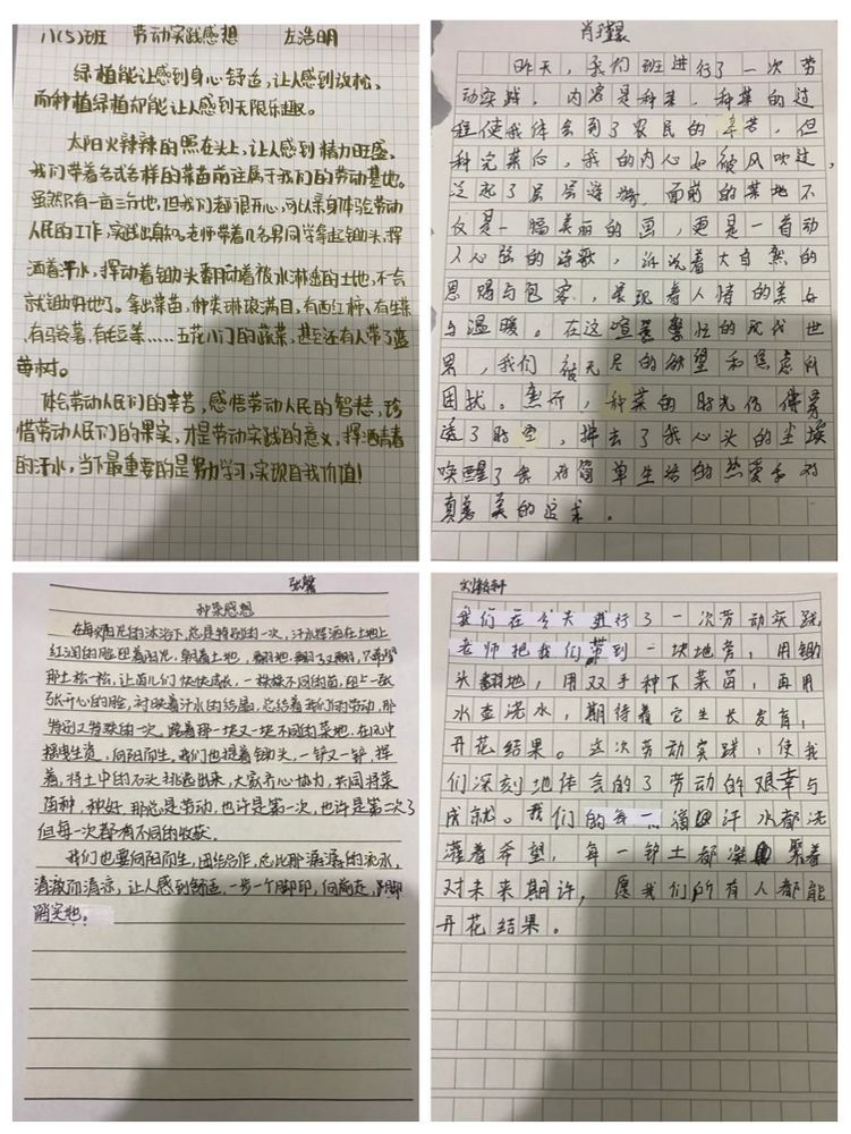 八(5)班 劳动实践感想 左浩明
绿植能让感到身心舒适,让人感到放松,
而种植绿植却能让人感到无限乐趣。
太阳火辣辣的照在头上,让人感到精力旺盛,
我们带着各式各样的菜苗前往属于我们的劳动基地。
虽然只有一亩三分地,但我们都很开心,可以亲身体验劳动
人民的工作,实践出真知。老师带着几名男同学拿起锄头,挥
洒着汗水,挥动着锄头翻动着被水淋盛的土地,不一会
就锄好地了。拿出菜苗,种类琳琅满目,有西红柿、有生菜
、有马铃薯,有毛豆等……五花八门的蔬菜,甚至还有人带了蓝
莓树。
体会劳动人民们的辛苦,感悟劳动人民的智慧,珍
惜劳动人民们的果实,才是劳动实践的意义,挥洒青春
的汗水,当下最重要的是努力学习,实现自我价值!
昨天,我们班进行了一次劳
动实践,内容是种菜,种菜的过
程使我体会到了农民的辛苦,但
种完菜后,我的内心如被风吹过,
泛起了层层涟漪,面前的菜地不
仅是一幅美丽的画,更是一首动
人心弦的诗歌,诉说着大自然的
恩赐与包容,展现着人情的美好
与温暖。在这喧嚣繁忙的现代世
界,我们被无尽的欲望和焦虑所
困扰。然而,种菜的时光仿佛穿
透了时空,掸去了我心头的尘埃
唤醒了我对简单生活的热爱和对
真善美的追求。
张馨
种菜感想
在每次阳光的沐浴下,总是特别的一次,汗水挥洒在土地上
红润的脸迎着阳光,朝着土地,翻地,翻了又翻,只希望
那土松一松,让苗儿们快快成长,一株株不同的苗,印上一张
张开心的脸,衬映着汗水的结晶,总结着我们的劳动,那
特别又特殊的一次,踏着那一块又一块不同的菜地,在风中
摇曳生资,向阳而生。我们也提着锄头,一铲又一铲,挥
着,将土中的石头挑选出来,大家齐心协力,共同将菜
苗种,种好,那总是劳动,也许是第一次,也许是第二次了
但每一次都有不同的收获。
我们也要向阳而生,团结合作,总比那潺潺的流水,
清澈而清凉,让人感到舒适,一步一个脚印,向前走,脚
踏实地。
我们在今天进行了一次劳动实践,
老师把我们带到一块地旁,用锄
头翻地,用双手种下菜苗,再用
水壶浇水,期待着它生长发育,
开花结果。这次劳动实践,使我
们深刻地体会的了劳动的艰幸与
成就。我们的每一滴汗水都浇
灌着希望,每一铲土都凝聚着
对未来期许,愿我们所有人都能
开花结果。